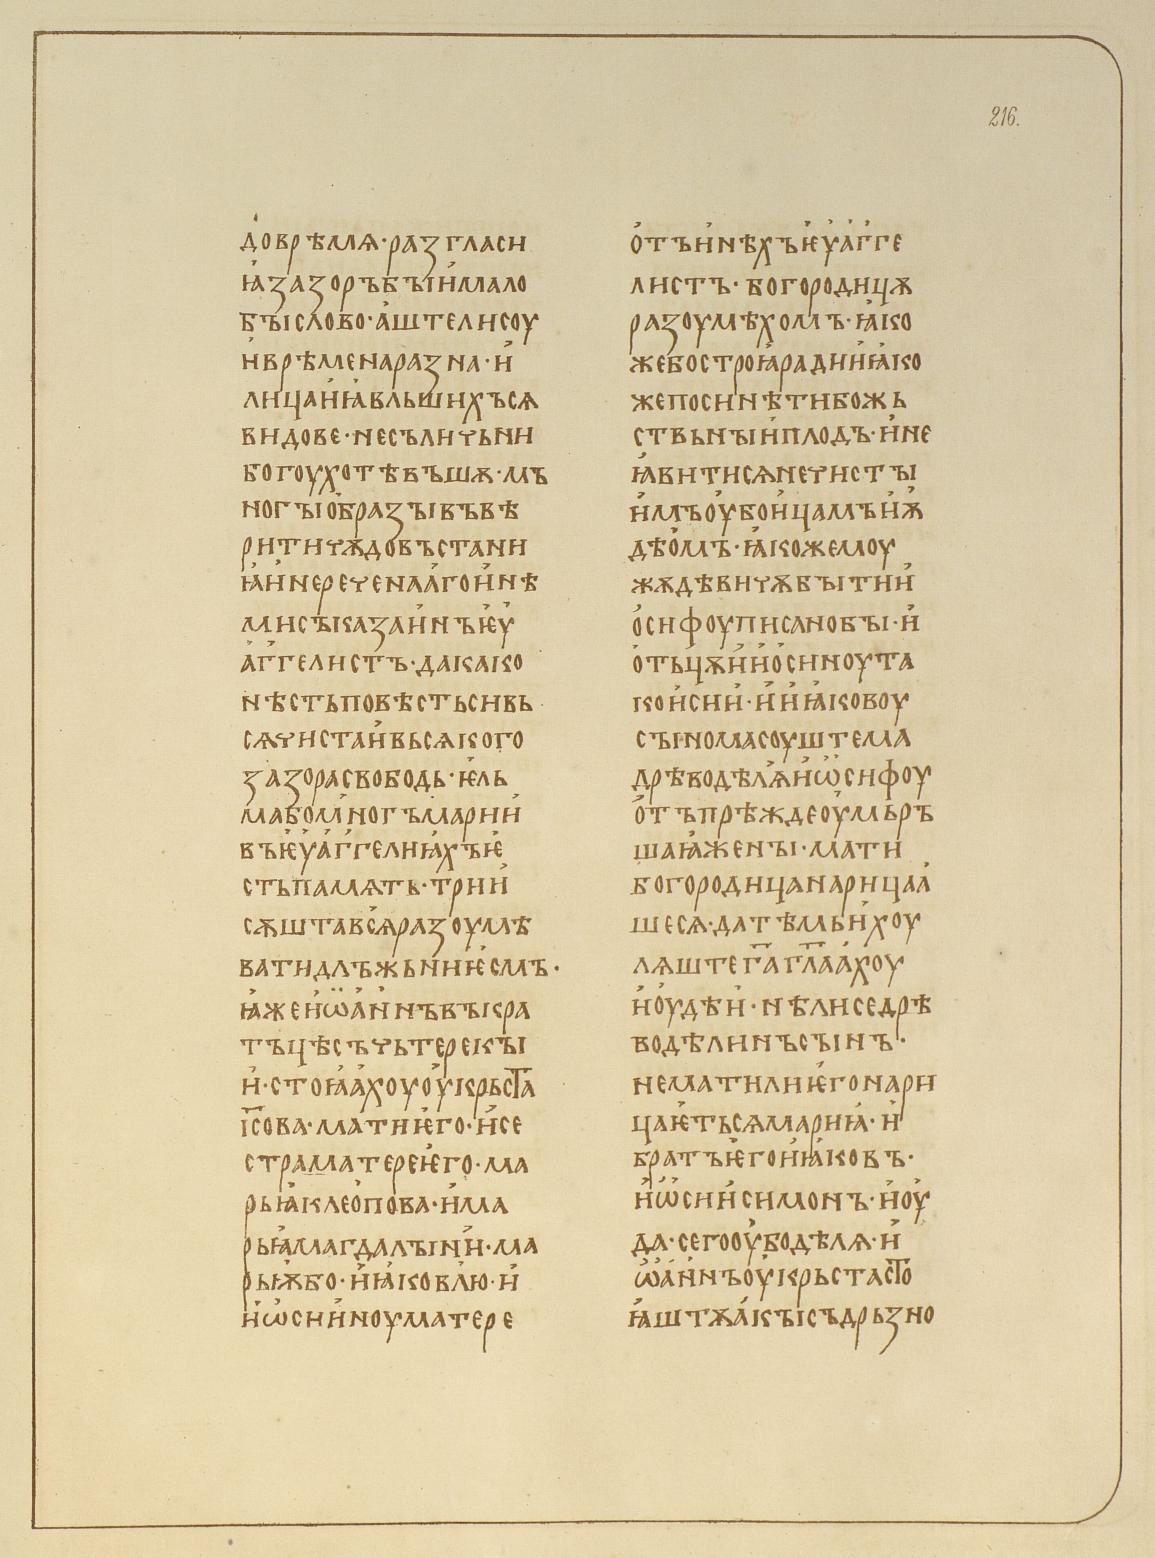 216.
довр҄ѣмѧ·разгласи
ꙗзазоръбꙑимало
бꙑслово·аштелисоу
ивр҄ѣменаразна·и
лицаиꙗвльшихъсѧ
видове·несъличьни
богоухотѣвъшѫ·мъ
ногꙑобразꙑвъвѣ
ритичѫдовъстани
ꙗинереченаагоинѣ
мисѣказаинъѥу
аггелистъ·дакако
нѣстьповѣстьсивь
сѧчистаивьсѧкого
зазорасвободь·ѥль
мабомногъмарии
въѥуаггелиꙗхъѥ
стьпамѧть·трии
сѫштавсѧразоумѣ
ватидлъжьниѥсмъ·
ꙗжеиѡаннъвъкра
тъцѣсъчьтерекꙑ
и·стоꙗахоуоукрьста
їсова·матиѥго·исе
страматереѥго·ма
рьꙗклеопова·има
рьꙗмагдалꙑни·ма
рьѭбо·иꙗковлю·и
иѡсииноуматере
отъинѣхъѥуагге
листъ·богородицѫ
разоумѣхомъ·ꙗко
жебостроꙗрадииꙗко
жепосинѣтибожь
ствьнꙑиплодъ·ине
ꙗвитисѧнечистꙑ
имъоубоицамъиѭ
дѣомъ·ꙗкожемоу
жѫдѣвичѫбꙑтии
осифоуписанобꙑ·и
отьцѫииосиноута
коисии·ииꙗковоу
сꙑномасоуштема
дрѣводѣлѧиѡсифоу
отъпрѣждеоумьръ
шаꙗженꙑ·мати
богородицанарицаа
шесѧ·датѣмьихоу
лѧштегаглаахоу
иоудѣи·нѣлиседрѣ
водѣлинъсꙑнъ·
нематилиѥгонари
цаѥтьсѧмариꙗ·и
братъѥгоиꙗковъ·
иѡсиисимонъ·иоу
да·сегооубодѣлѧ·и
ѡаннъоукрьстасто
ꙗштѫакꙑсъдрьзно